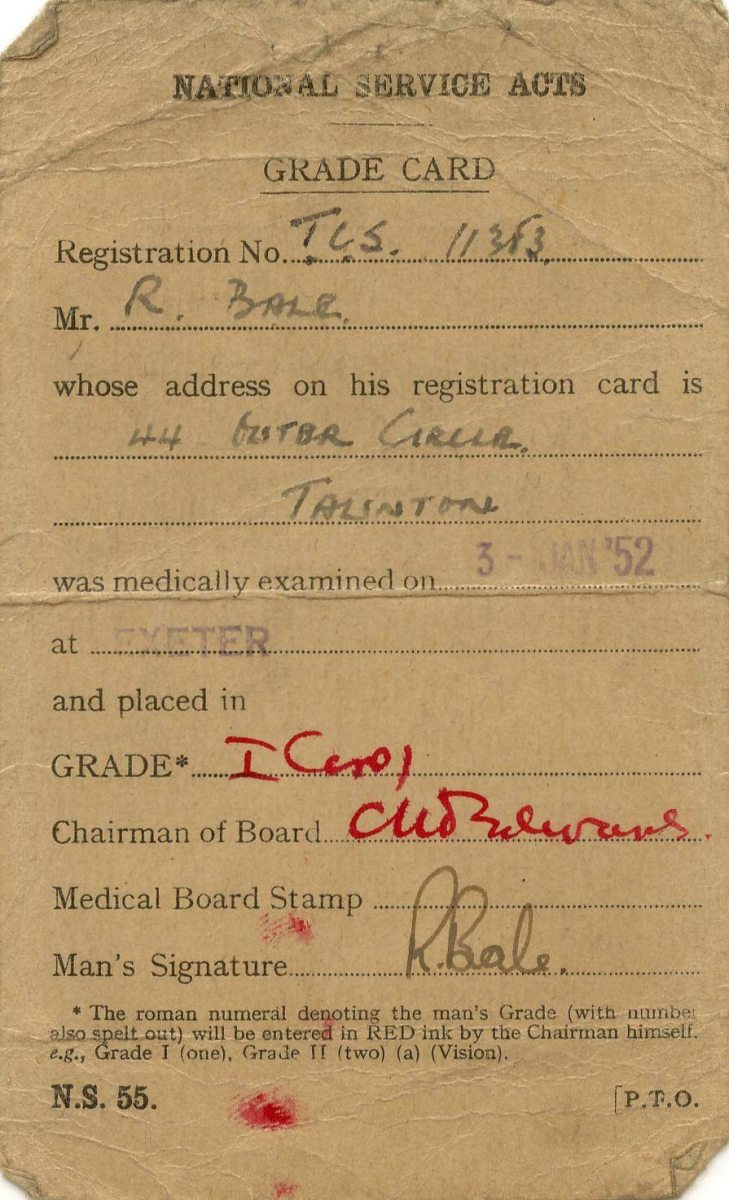 NATIONAL SERVICE ACTS
GRADE CARD
Registration No. T.C.S. 11383
Mr. R. BALE.
whose address on his registration card is
44 OUTER CIRCLE.
TAUNTON
was medically examined on 3 - JAN '52
at EXETER
and placed in
GRADE* I (
Chairman of Board
Medical Board Stamp
Man's Signature R. Bale.
* The roman numeral denoting the man's Grade (with number
also spelt out) will be entered in RED ink by the Chairman himself.
e.g., Grade I (one), Grade II (two) (a) (Vision).
N.S. 55. [P.T.O.